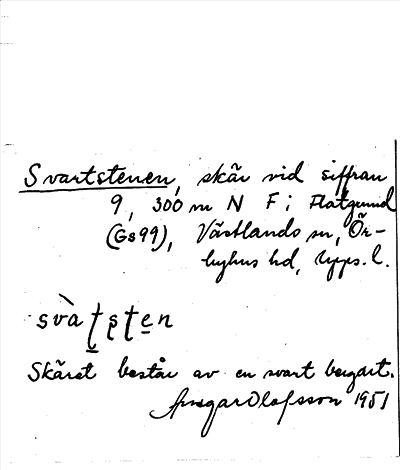 Svartstenen, skär vid siffran
9, 300 m N F i Flatgrund
(Gs 99), Västlands sn, Ör-
byhus hd, Upps. l.
svàʈʂʈen
Skäret består av en svart bergart.
Ansgar Olofsson 1951